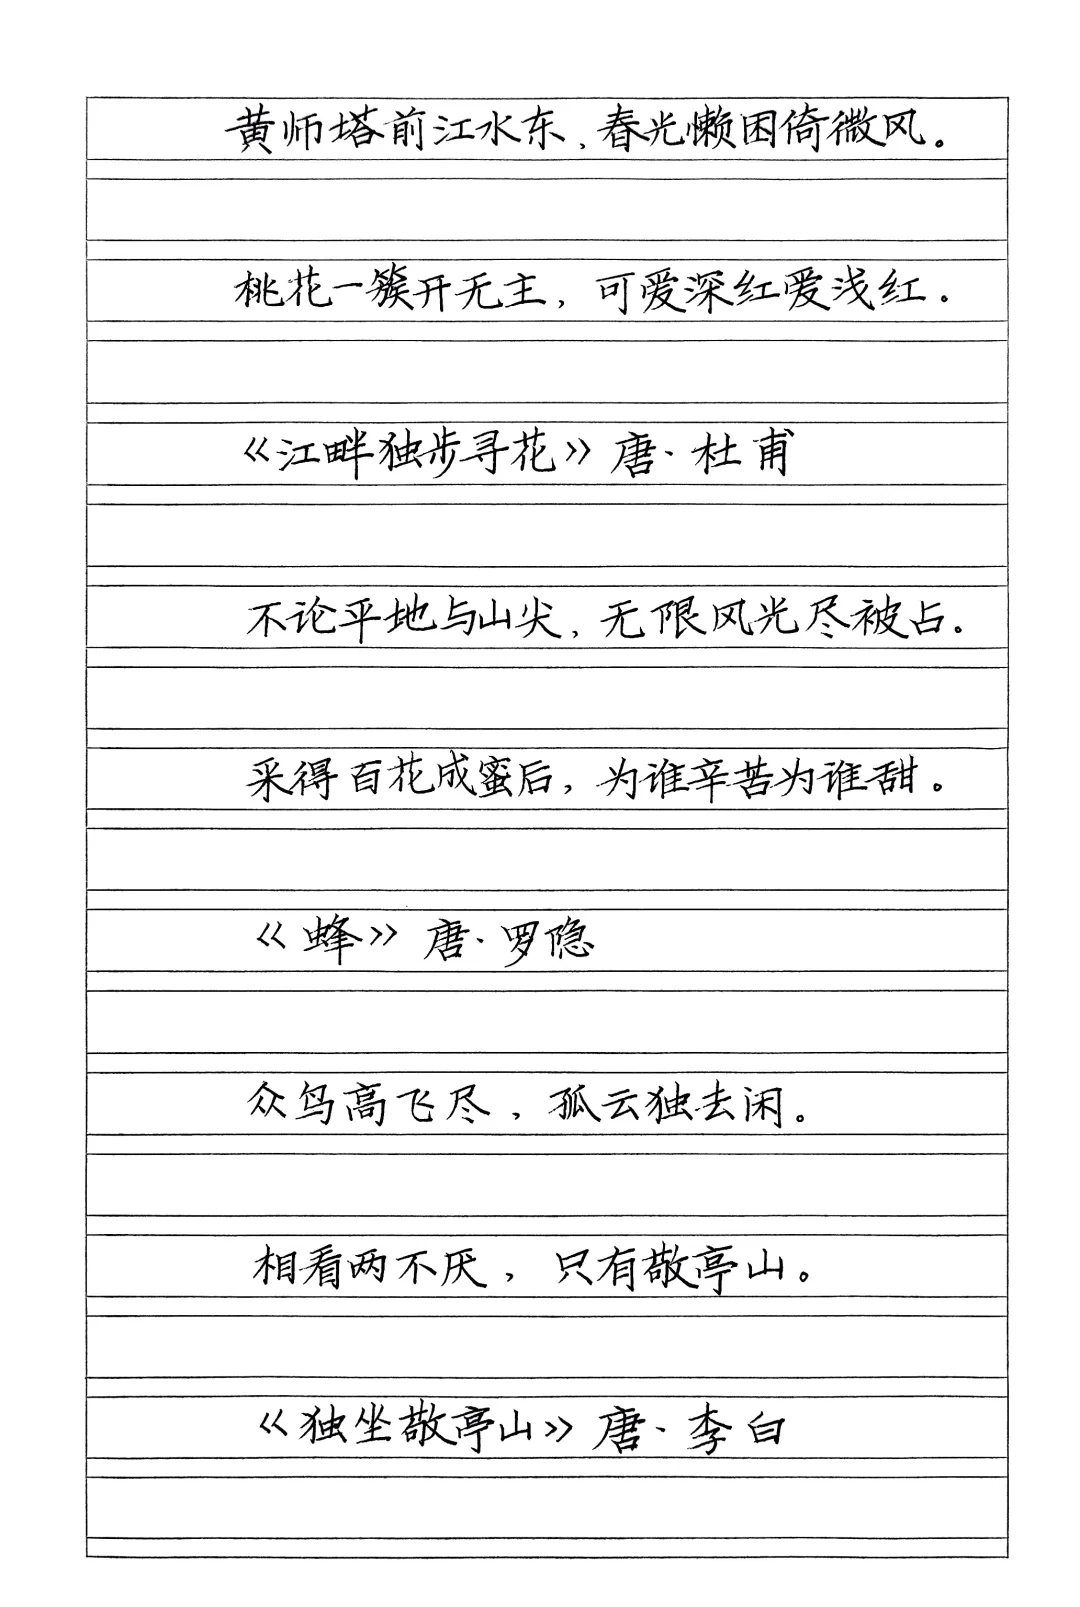 黄师塔前江水东,春光懒困倚微风。
桃花一簇开无主,可爱深红爱浅红。
《江畔独步寻花》唐·杜甫
不论平地与山尖,无限风光尽被占。
采得百花成蜜后,为谁辛苦为谁甜。
《蜂》唐·罗隐
众鸟高飞尽,孤云独去闲。
相看两不厌,只有敬亭山。
《独坐敬亭山》唐·李白